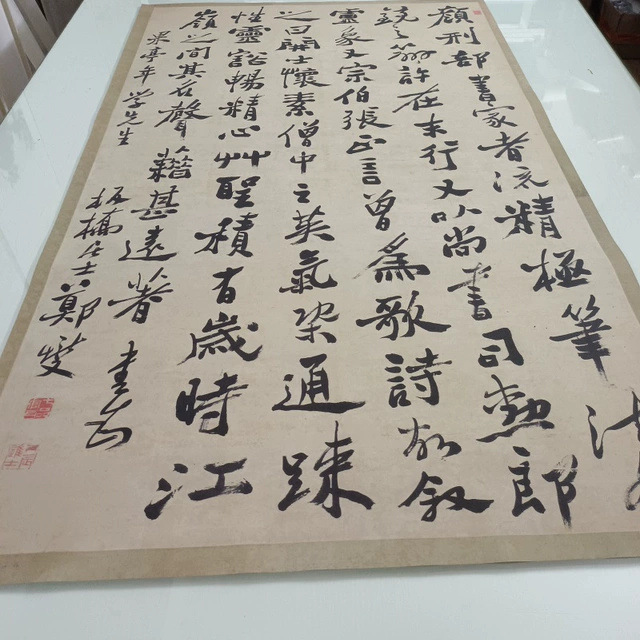 顏刑部書家者流精極筆法
鏡之辯許在末行又以尚書司勳郎
盧象又宗伯張正言曾為歌詩故敘
之曰開士懷素僧中之英氣槩通疎
性靈豁暢精心艸聖積有歲時江
嶺之間其名聲藉甚遠著 書為
杲亭年學先生
板橋居士鄭燮